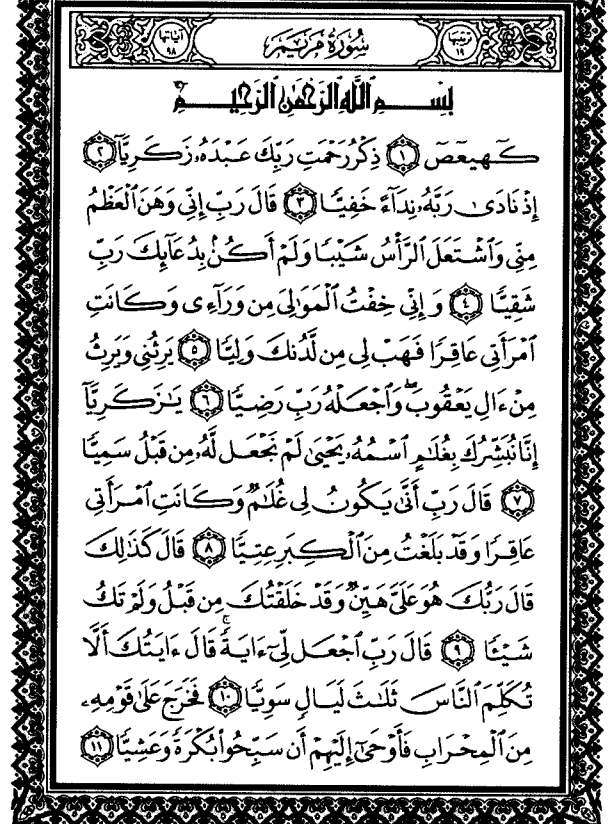 ترتيبها ١٩ سُورَةُ مَرْيَمَ آياتها ٩٨
بِسْمِ ٱللَّهِ ٱلرَّحْمَٰنِ ٱلرَّحِيمِ
كٓهيعٓصٓ ١ ذِكْرُ رَحْمَتِ رَبِّكَ عَبْدَهُۥ زَكَرِيَّآ ٢
إِذْ نَادَىٰ رَبَّهُۥ نِدَآءً خَفِيًّا ٣ قَالَ رَبِّ إِنِّى وَهَنَ ٱلْعَظْمُ
مِنِّى وَٱشْتَعَلَ ٱلرَّأْسُ شَيْبًا وَلَمْ أَكُنۢ بِدُعَآئِكَ رَبِّ
شَقِيًّا ٤ وَإِنِّى خِفْتُ ٱلْمَوَٰلِىَ مِن وَرَآءِى وَكَانَتِ
ٱمْرَأَتِى عَاقِرًا فَهَبْ لِى مِن لَّدُنكَ وَلِيًّا ٥ يَرِثُنِى وَيَرِثُ
مِنْ ءَالِ يَعْقُوبَ ۖ وَٱجْعَلْهُ رَبِّ رَضِيًّا ٦ يَٰزَكَرِيَّآ
إِنَّا نُبَشِّرُكَ بِغُلَٰمٍ ٱسْمُهُۥ يَحْيَىٰ لَمْ نَجْعَل لَّهُۥ مِن قَبْلُ سَمِيًّا
٧ قَالَ رَبِّ أَنَّىٰ يَكُونُ لِى غُلَٰمٌ وَكَانَتِ ٱمْرَأَتِى
عَاقِرًا وَقَدْ بَلَغْتُ مِنَ ٱلْكِبَرِ عِتِيًّا ٨ قَالَ كَذَٰلِكَ
قَالَ رَبُّكَ هُوَ عَلَىَّ هَيِّنٌ وَقَدْ خَلَقْتُكَ مِن قَبْلُ وَلَمْ تَكُ
شَيْـًٔا ٩ قَالَ رَبِّ ٱجْعَل لِّىٓ ءَايَةً ۚ قَالَ ءَايَتُكَ أَلَّا
تُكَلِّمَ ٱلنَّاسَ ثَلَٰثَ لَيَالٍ سَوِيًّا ١٠ فَخَرَجَ عَلَىٰ قَوْمِهِۦ
مِنَ ٱلْمِحْرَابِ فَأَوْحَىٰٓ إِلَيْهِمْ أَن سَبِّحُوا۟ بُكْرَةً وَعَشِيًّا ١١